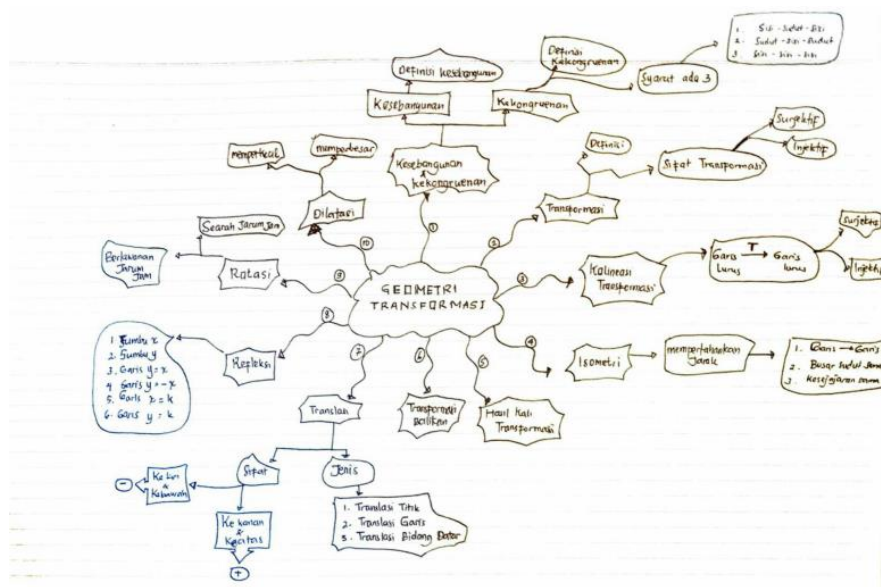 GEOMETRI
TRANSFORMASI
1
Kesebangunan
&
Kekongruenan
Kesebangunan
Definisi kesebangunan
Kekongruenan
Definisi
Kekongruenan
Syarat ada 3
1. Sisi - Sudut - Sisi
2. Sudut - Sisi - Sudut
3 Sisi - Sisi - Sisi
2
Transformasi
Definisi
Sifat Transformasi
Surjektif
Injektif
3
Kolineasi
Transformasi
Garis T Garis
lurus lurus
Surjektif
Injektif
4
Isometri
mempertahankan
Jarak
1. Garis → Garis
2. Besar sudut sama
3. Kesejajaran sama
5
Hasil Kali
Transformasi
6
Transformasi
Balikan
7
Translasi
Sifat
Ke kiri
&
Kebawah
-
Ke kanan
&
Keatas
+
Jenis
1. Translasi Titik
2. Translasi Garis
3. Translasi Bidang Datar
8
Refleksi
1 Sumbu x
2. Sumbu y
3. Garis y = x
4 Garis y = -x
5. Garis x = k
6. Garis y = k
9
Rotasi
Searah Jarum Jam
Berlawanan
Jarum
Jam
10
Dilatasi
memperkecil
memperbesar